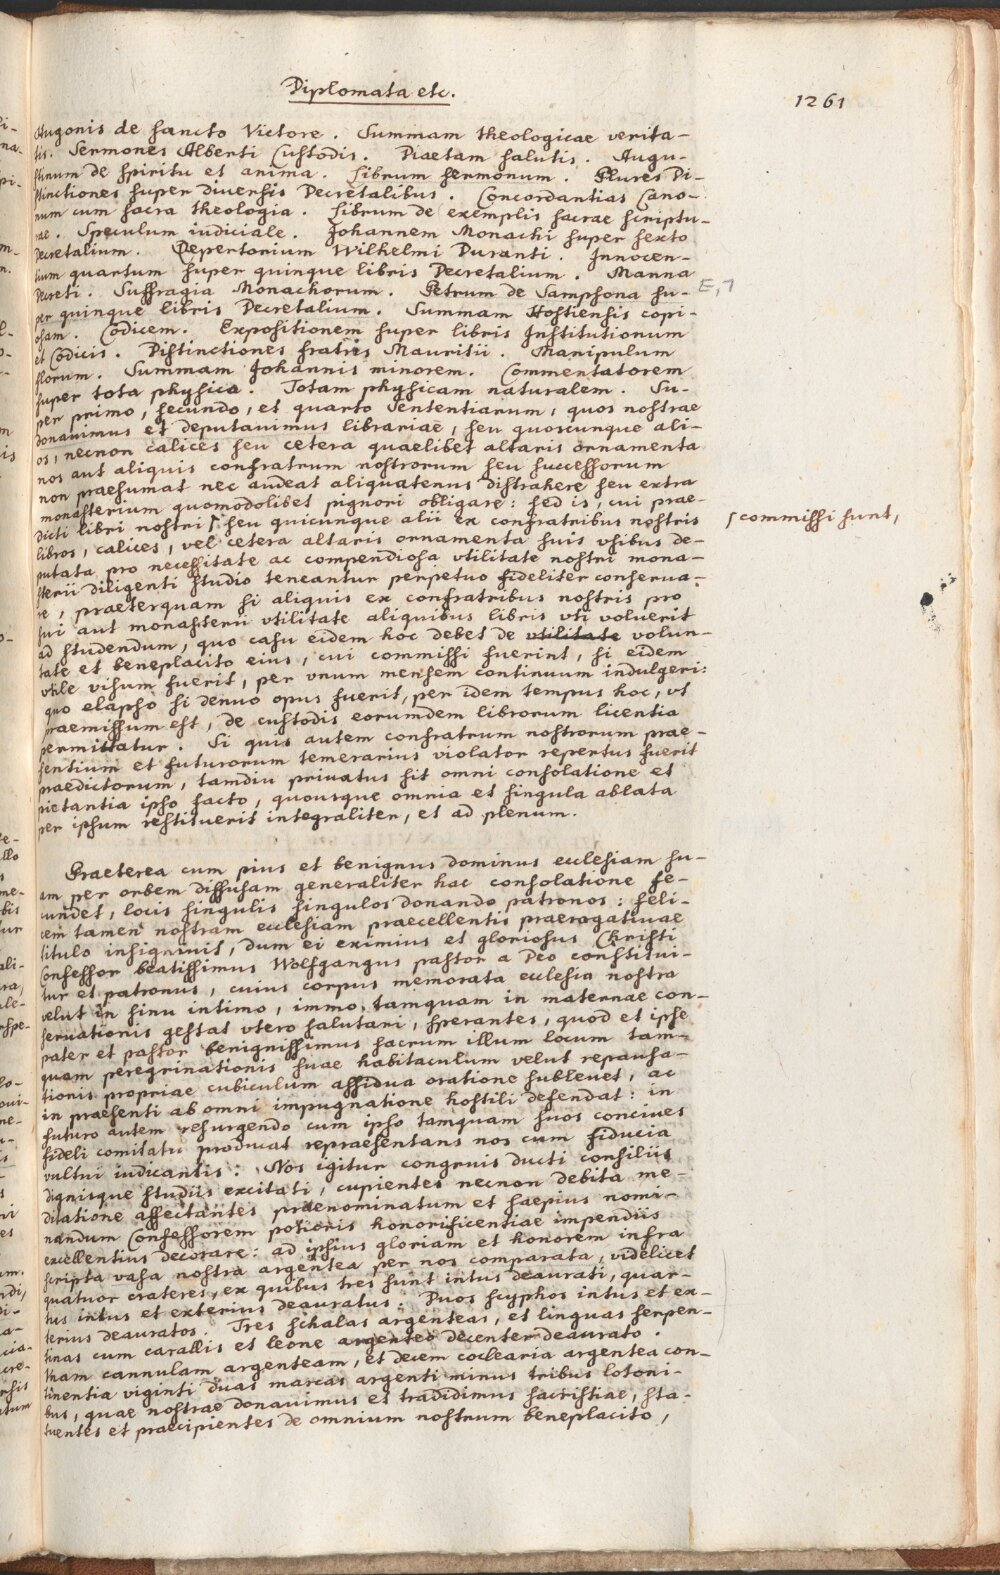 Diplomata etc.
1261
Hugonis de sancto Victore. Summam theologicae verita-
tis. Sermones Alberti Custodis. Diaetam salutis. Augu-
stinum de spiritu et anima. Librum sermonum. Plures Di-
stinctiones super diuersis Decretalibus. Concordantias Cano-
num cum sacra theologia. Librum de exemplis sacrae scriptu-
rae. Speculum iudiciale. Johannem Monachi super sexto
Decretalium. Repertorium Wilhelmi Duranti. Innocen-
tium quartum super quinque libris Decretalium. Manna
Decreti. Suffragia Monachorum. Petrum de Samphona su-
per quinque libris Decretalium. Summam Hostiensis copi-
osam. Codicem. Expositionem super libris Institutionum
et Codicis. Distinctiones fratris Mauritii. Manipulum
florum. Summam Johannis minorem. Commentatorem
super tota physica. Totam physicam naturalem. Su-
per primo, secundo, et quarto Sententiarum, quos nostrae
donauimus et deputauimus librariae, seu quoscunque ali-
os, necnon calices seu cetera quaelibet altaris ornamenta
nos aut aliquis confratrum nostrorum seu successorum
non praesumat nec audeat aliquatenus distrahere seu extra
monasterium quomodolibet pignori obligare: sed is, cui prae-
dicti libri nostri ⌠ seu quicunque alii ex confratribus nostris
⌠ commissi sunt,
libros, calices, vel cetera altaris ornamenta suis vsibus de-
putata pro necessitate ac compendiosa vtilitate nostri mona-
sterii diligenti studio teneantur perpetuo fideliter conserua-
re, praeterquam si aliquis ex confratribus nostris pro
sui aut monasterii vtilitate aliquibus libris vti voluerit
ad studendum, quo casu eidem hoc debet de vtilitate volun-
tate et beneplacito eius, cui commissi fuerint, si eidem
vtile visum fuerit, per vnum mensem continuum indulgeri:
quo elapso si denuo opus fuerit, per idem tempus hoc, vt
praemissum est, de custodis eorumdem librorum licentia
permittatur. Si quis autem confratrum nostrorum prae-
sentium et futurorum temerarius violator repertus fuerit
praedictorum, tamdiu priuatus sit omni consolatione et
pietantia ipso facto, quousque omnia et singula ablata
per ipsum restituerit integraliter, et ad plenum.
Praeterea cum pius et benignus dominus ecclesiam su-
am per orbem diffusam generaliter hac consolatione fe-
cundet, locis singulis singulos donando patronos: feli-
cem tamen nostram ecclesiam praecellentis praerogatiuae
titulo insigniuit, dum ei eximius et gloriosus Christi
Confessor beatissimus Wolfgangus pastor a Deo constitui-
tur et patronus, cuius corpus memorata ecclesia nostra
velut in sinu intimo, immo, tamquam in maternae con-
seruationis gestat vtero salutari, sperantes, quod et ipse
pater et pastor benignissimus sacrum illum locum tam-
quam peregrinationis suae habitaculum velut repausa-
tionis propriae cubiculum assidua oratione subleuet, ac
in praesenti ab omni impugnatione hostili defendat: in
futuro autem resurgendo cum ipso tamquam suos conciues
fideli comitatu producat repraesentans nos cum fiducia
vultui iudicantis: Nos igitur congruis ducti consiliis
dignisque studiis excitati, cupientes necnon debita me-
ditatione affectantes praenominatum et saepius nomi-
nandum Confessorem potioris honorificentiae impendiis
excellentius decorare: ad ipsius gloriam et honorem infra
scripta vasa nostra argentea per nos comparata, videlicet
quatuor crateres, ex quibus tres sunt intus deaurati, quar-
tus intus et exterius deauratus: Duos scyphos intus et ex-
terius deauratos. Tres schalas argenteas, et linguas serpen-
tinas cum corallis et leone argenteo decenter deaurato.
Unam cannulam argenteam, et decem coclearia argentea con-
tinentia viginti duas marcas argenti minus tribus lotoni-
bus, quae nostrae donauimus et tradidimus sacristiae, sta-
tuentes et praecipientes de omnium nostrum beneplacito,